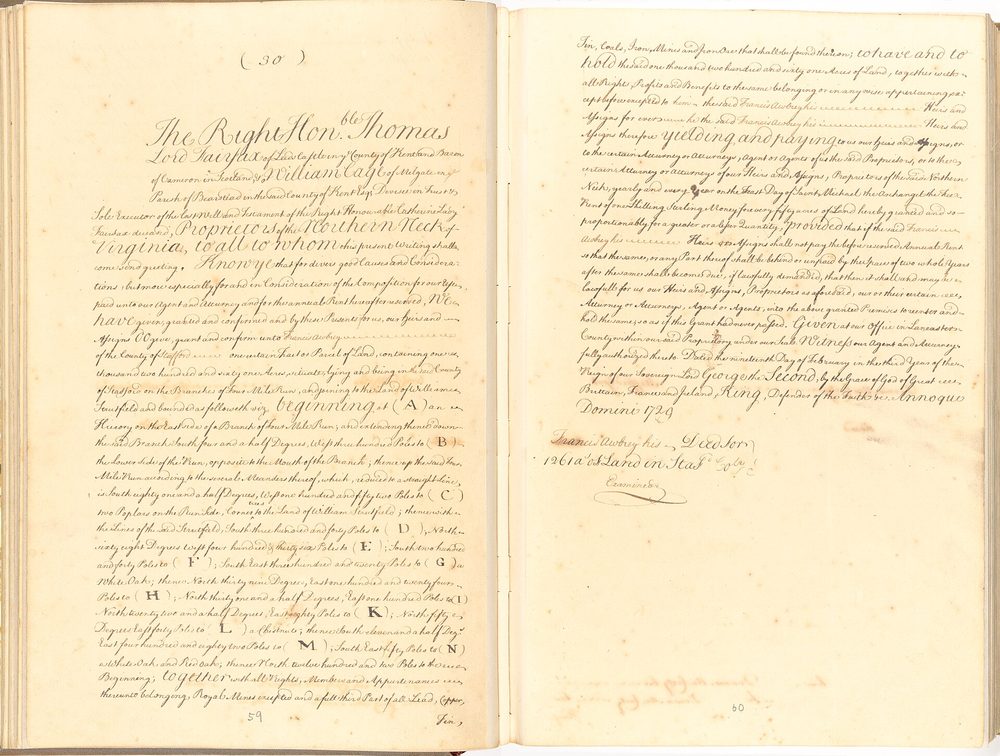 ( 30 )
The Right Hon.ble Thomas
Lord Fairfax of Leeds Castle in ye County of Kent and Baron
of Cameron in Scotland, & William Cage of Milgate in ye
Parish of Bearstead in the said County of Kent Esqr. Devisee in Trust &
Sole Executor of the Last Will and Testament of the Right Honourable Catherine Lady
Fairfax deceasd, Proprietors of the Northern Neck of
Virginia, to all to whom this present Writing shall
come send greeting. Know ye that for divers good Causes and Considera-
tions, but more especially for and in Consideration of the Composition for our Use
paid unto our Agent and Attorney and for the annual Rent hereafter reserved, We
have given, granted and confirmed and by these Presents for us, our Heirs and
Assigns Do give, grant and confirm unto Francis Awbrey
of the County of Stafford one certain Tract or Parcel of Land, containing one
thousand two hundred and sixty one Acres, situate, lying and being in the said County
of Stafford on the Branches of Four Mile Run, and joyning to the Land of William
Struttfield and bounded as followeth viz. beginning at ( A ) an
Hiccory on the East side of a Branch of Four Mile Run; and extending thence down
the said Branch South four and a half Degrees, West three hundred Poles to ( B )
the lower Side of the Run, opposite to the Mouth of the Branch; thence up the said Four
Mile Run according to the several Meanders thereof, which, reduced to a straight Line,
is South eighty one and a half Degrees, West one hundred and fifty two Poles to ( C )
two Poplars on the Run Side, Corner trees to the Land of William Struttfield; thence with
the Lines of the said Struttfield, South three hundred and forty Poles to ( D ), North
sixty eight Degrees West four hundred & thirty six Poles to ( E ); South two hundred
and forty Poles to ( F ); South East three hundred and twenty Poles to ( G ) a
White Oak; thence North thirty nine Degrees, East one hundred and twenty four
Poles to ( H ); North thirty one and a half Degrees, East one hundred Poles to ( I )
North twenty two and a half Degrees, East eighty Poles to ( K ); North fifty
Degrees East forty Poles to ( L ) a Chestnut; thence South eleven and a half Degs.
East four hundred and eighty two Poles to ( M ); South East fifty Poles to ( N )
a White Oak and Red Oak; thence North twelve hundred and two Poles to the
Beginning; together with all Rights, Members and Appurtenances
thereunto belonging, Royal Mines excepted and a full third Part of all Lead, Copper,
Tin,
59
Tin, Coals, Iron, Mines and Iron Ore that shall be found thereon; to have and to
hold the said one thousand two hundred and sixty one Acres of Land, together with
all Rights, Profits and Benefits to the same belonging or in any wise appertaining ex-
cept before excepted to him the said Francis Awbrey his Heirs and
Assigns for ever he the said Francis Awbrey his Heirs and
Assigns therefore yielding and paying to us our Heirs and Assigns, or
to the certain Attorney or Attorneys, Agent or Agents of us the said Proprietors, or to the
certain Attorney or Attorneys of our Heirs and Assigns, Proprietors of the said Northern
Neck, yearly and every Year on the Feast Day of Saint Michael the Archangel the Fee
Rent of one Shilling Sterling Money for every fifty acres of Land hereby granted and so
proportionably for a greater or lesser Quantity; provided that if the said Francis
Awbrey his Heirs or Assigns shall not pay the before reserved Annual Rent
so that the same, or any Part thereof shall be behind or unpaid by the space of two whole Years
after the same shall become due, if lawfully demanded, that then it shall and may be
lawfull for us our Heirs and Assigns, Proprietors as aforesaid, our or their certain
Attorney or Attorneys, Agent or Agents, into the above granted Premises to reenter and
hold the same, so as if this Grant had never passed. Given at our Office in Lancaster
County within our said Proprietory under our Seal. Witness our Agent and Attorney
fully authorized thereto Dated the nineteenth Day of February in the third Year of the
Reign of our Sovereign Lord George the Second, by the Grace of God of Great
Brittain, France and Ireland, King, Defender of the Faith &c. Annoque
Domini 1729
Francis Awbrey his Deed for
1261 as. of Land in Staffd.
Examined
60